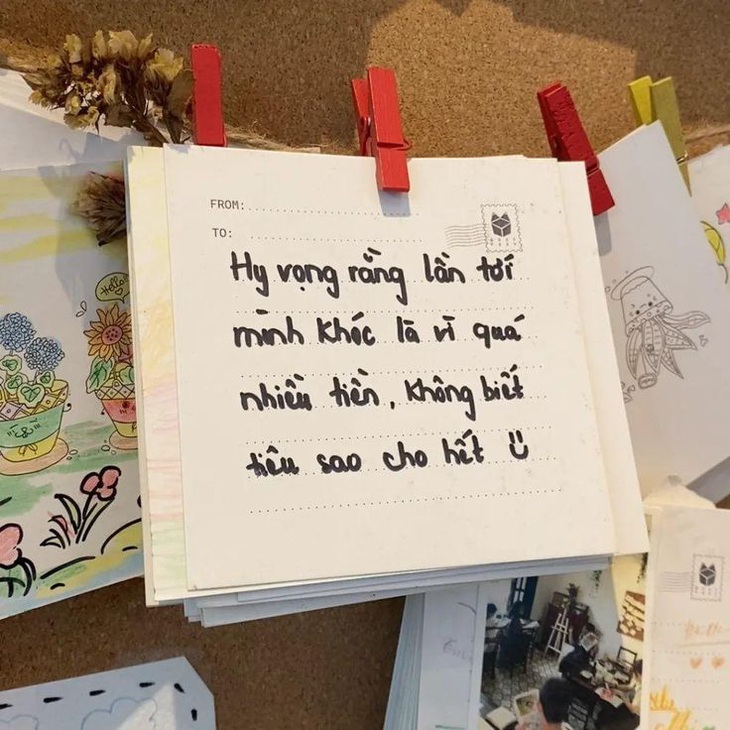 FROM:
TO:
Hy vọng rằng lần tới
mình khóc là vì quá
nhiều tiền, không biết
tiêu sao cho hết
Hello!